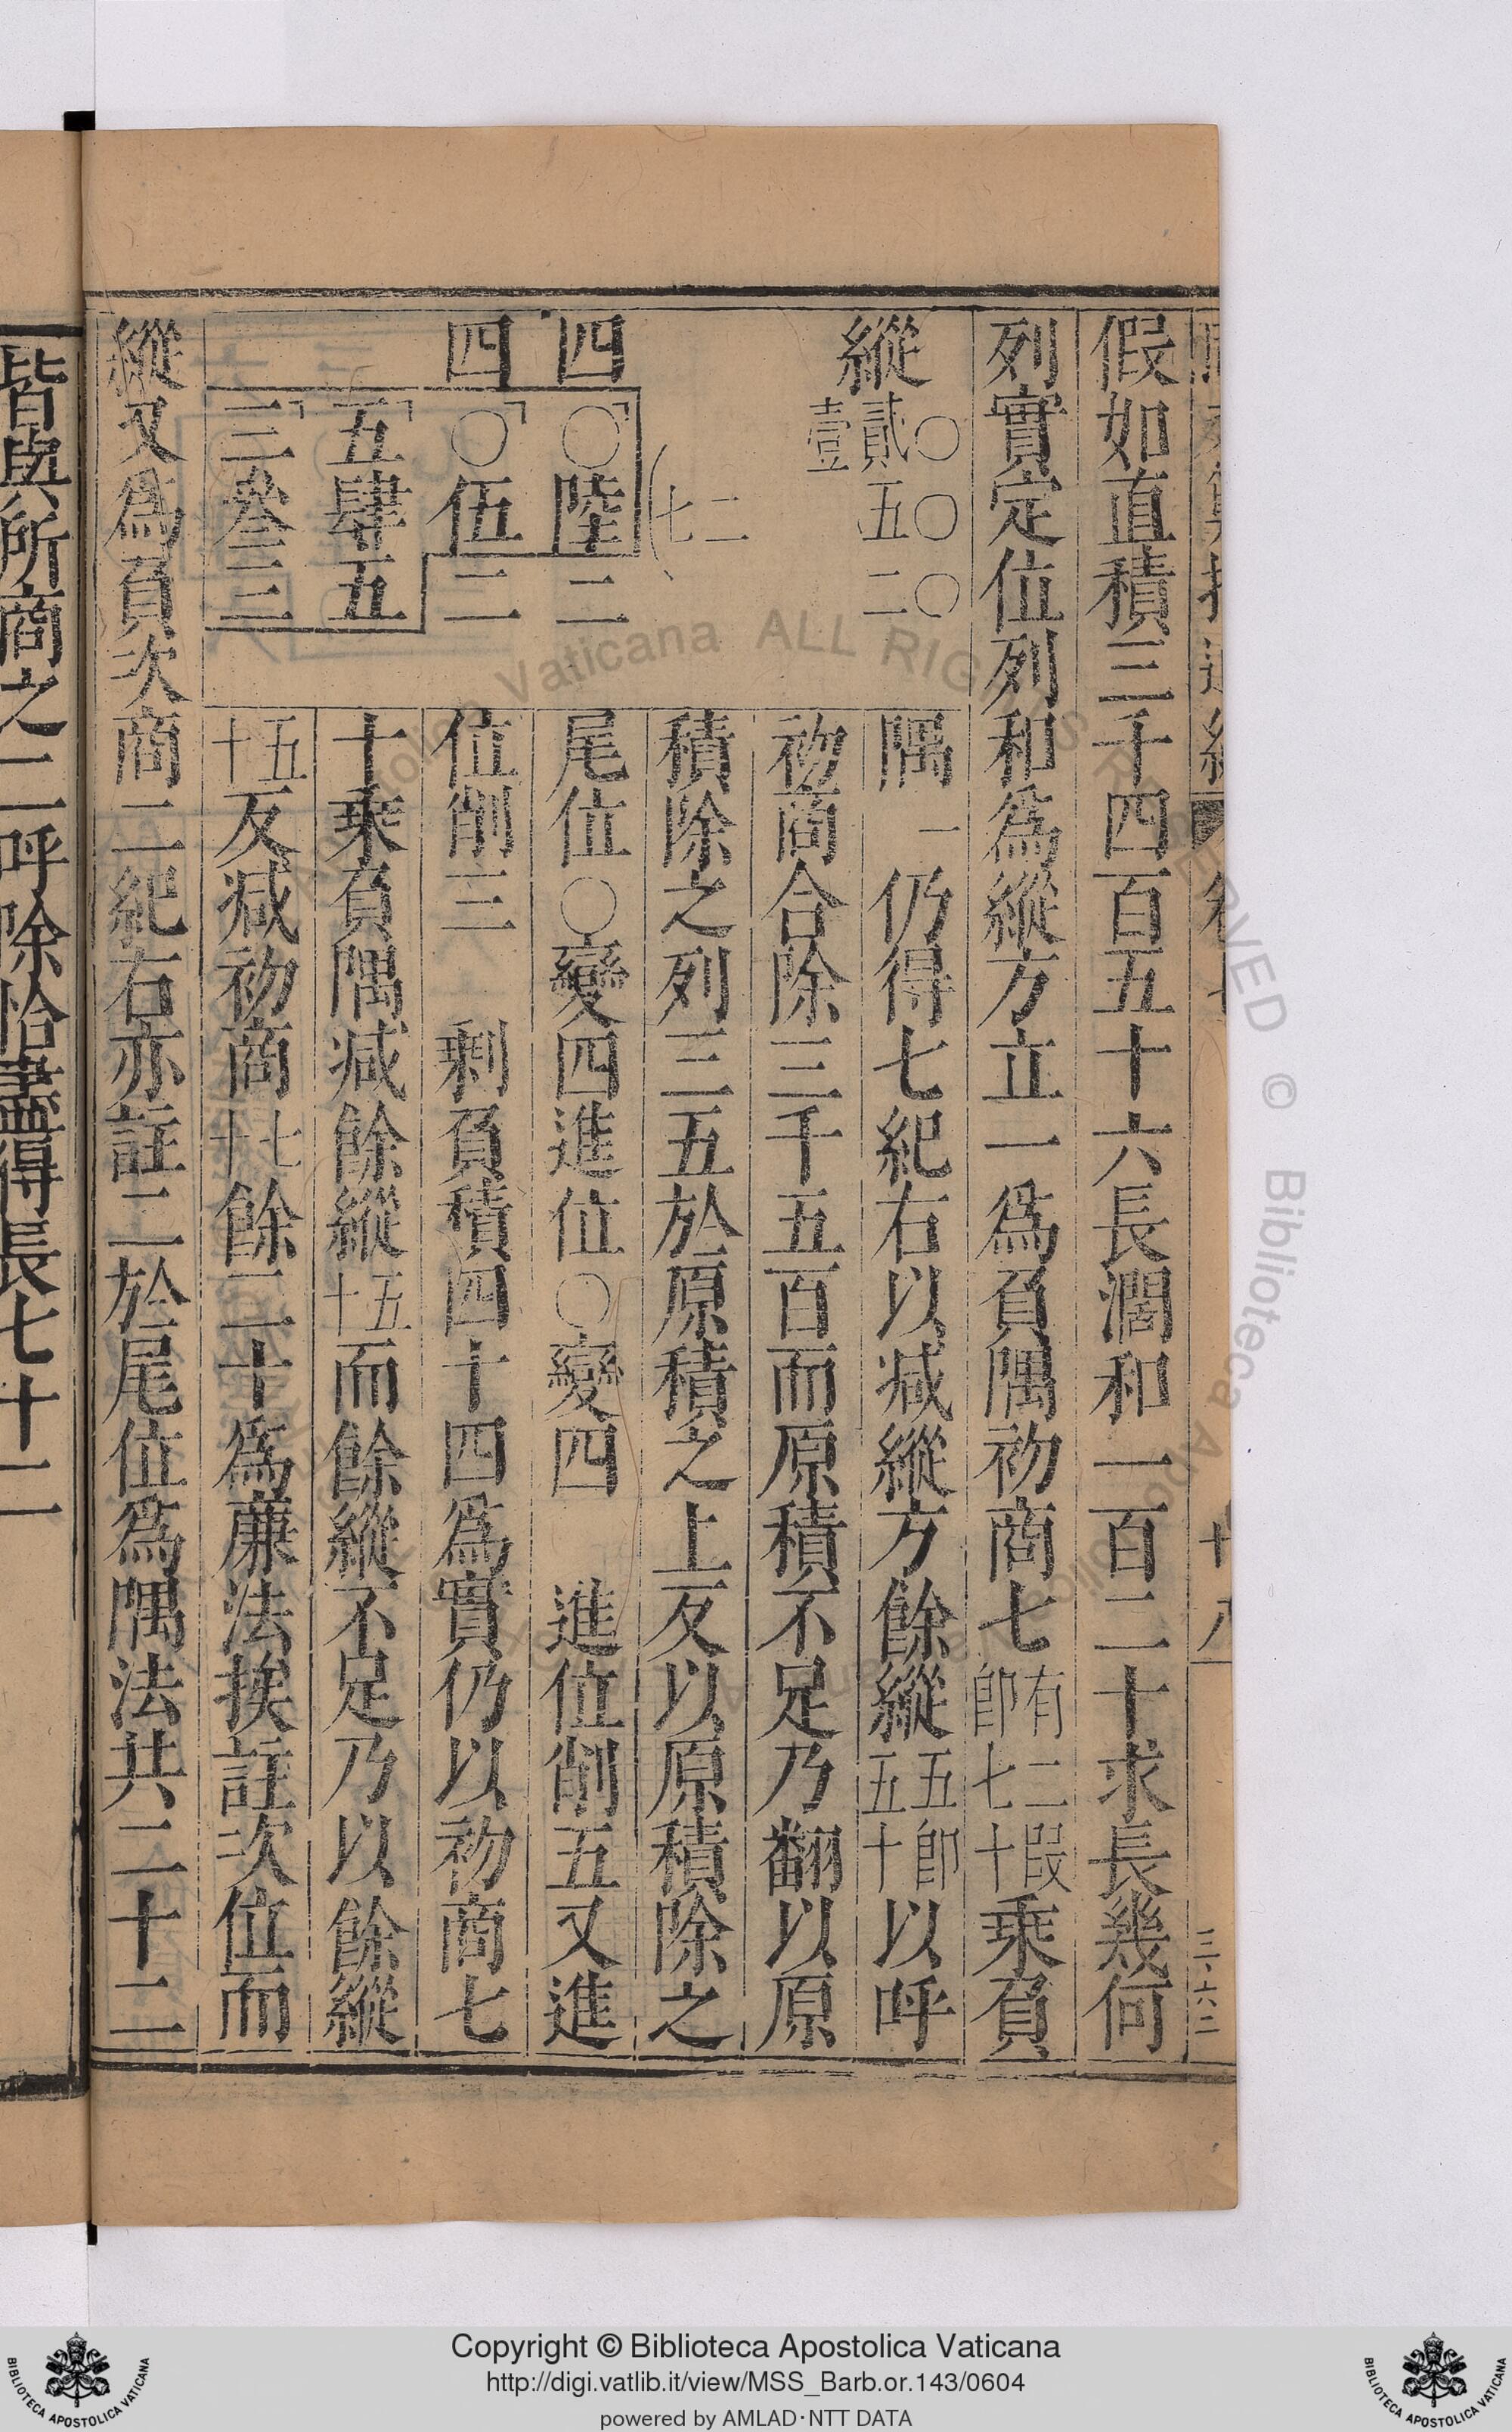 假如直積三千四百五十六長濶和一百二十求長幾何
列實定位列和為縱方立一為負隅初商七有二叚即七十乘負
隅一仍得七紀右以减縱方餘縱五五即五十以呼
初商合除三千五百而原積不足乃翻以原
積除之列三五於原積之上反以原積除之
尾位〇變四進位〇變四 進位削五又進
位削三 剩負積四十四為實仍以初商七
十乘負隅减餘縱五十而餘縱不足乃以餘縱
五十反减初商七十餘二十為廉法挨註次位而
縱又為負次商二紀右亦註二於尾位為隅法共二十二
縱
〇〇〇
貳五二
壹
二
七
四
〇陸二
四
〇伍二
五肆五
三叁三
十八
三六二
皆與所商之二呼除恰盡得長七十二
Copyright © Biblioteca Apostolica Vaticana
http://digi.vatlib.it/view/MSS_Barb.or.143/0604
powered by AMLAD·NTT DATA
BIBLIOTECA APOSTOLICA VATICANA
BIBLIOTECA APOSTOLICA VATICANA